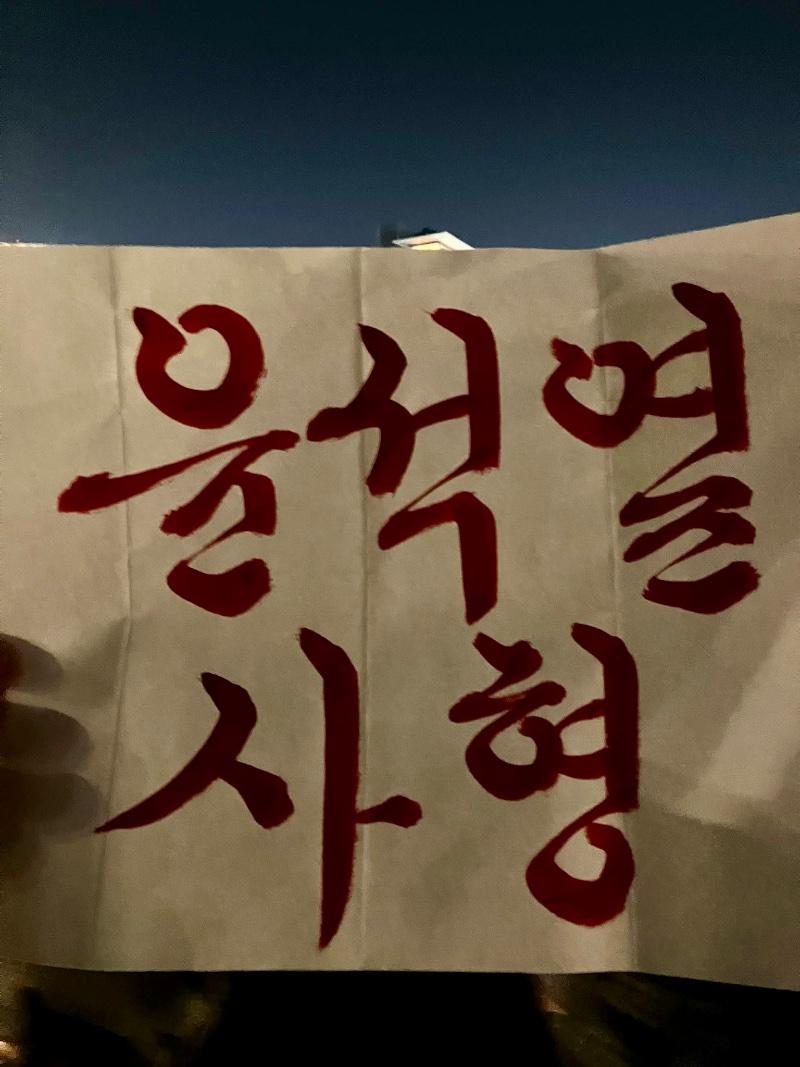 윤석열
사형